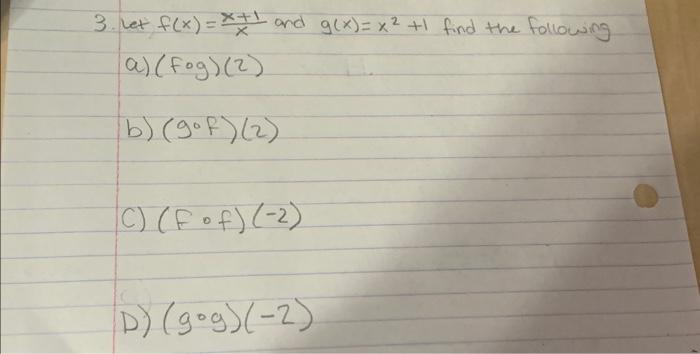 3. Let f(x) = x+1/x and g(x) = x² +1 find the following
a) (f∘g)(2)
b) (g∘f)(2)
C) (f∘f)(-2)
D) (g∘g)(-2)